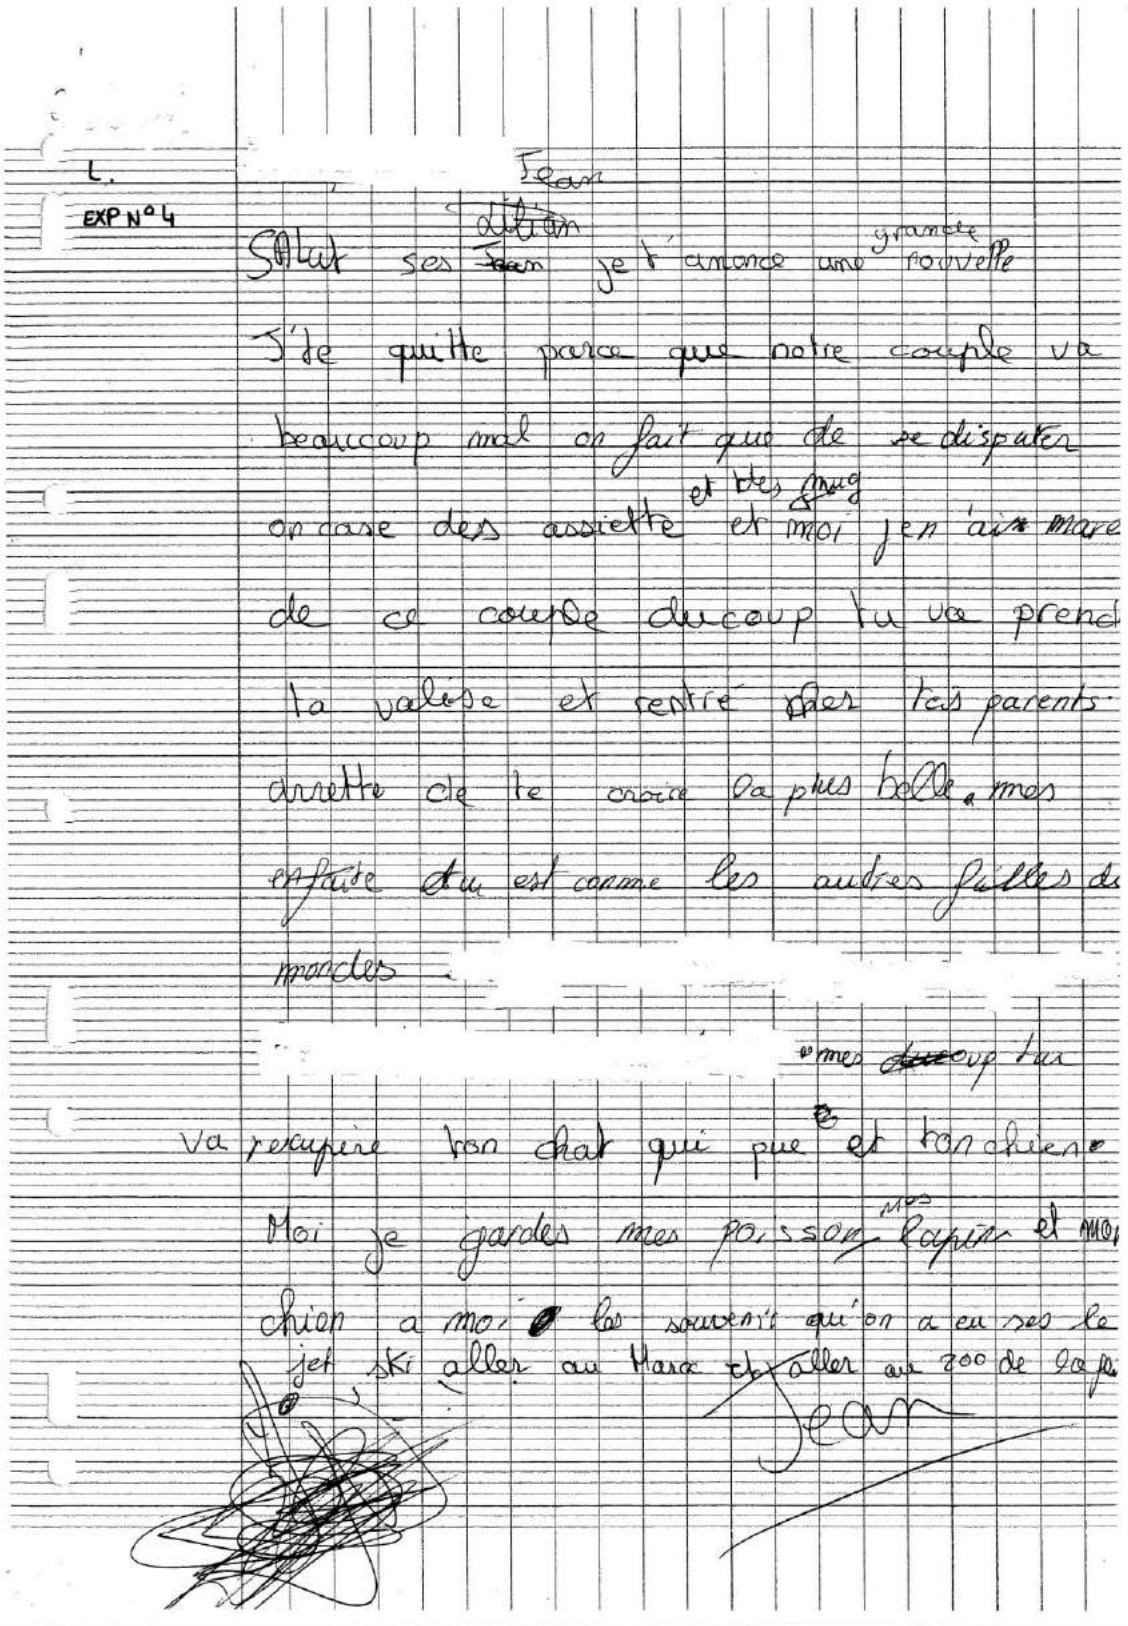 L.
EXP N°4
Jean
Lilian
grande
SALut ses Jean je t'anonce une nouvelle
J'te quitte parce que notre couple va
beaucoup mal on fait que de se disputer
et des mug
on case des assiette et moi j'en ais mare
de ce couple ducoup tu va prend
ta valise et rentré chez tes parents.
arrette de te croire la plus belle. mes
enfaite tu est comme les autres filles du
mondes
mes ducoup tu
va recupère ton chat qui pue et ton chien.
mes
Moi je gardes mes poisson lapin et mon
chien a moi les souvenir qu'on a eu ses le
jet ski aller au Maroc et aller au zoo de la
Jean